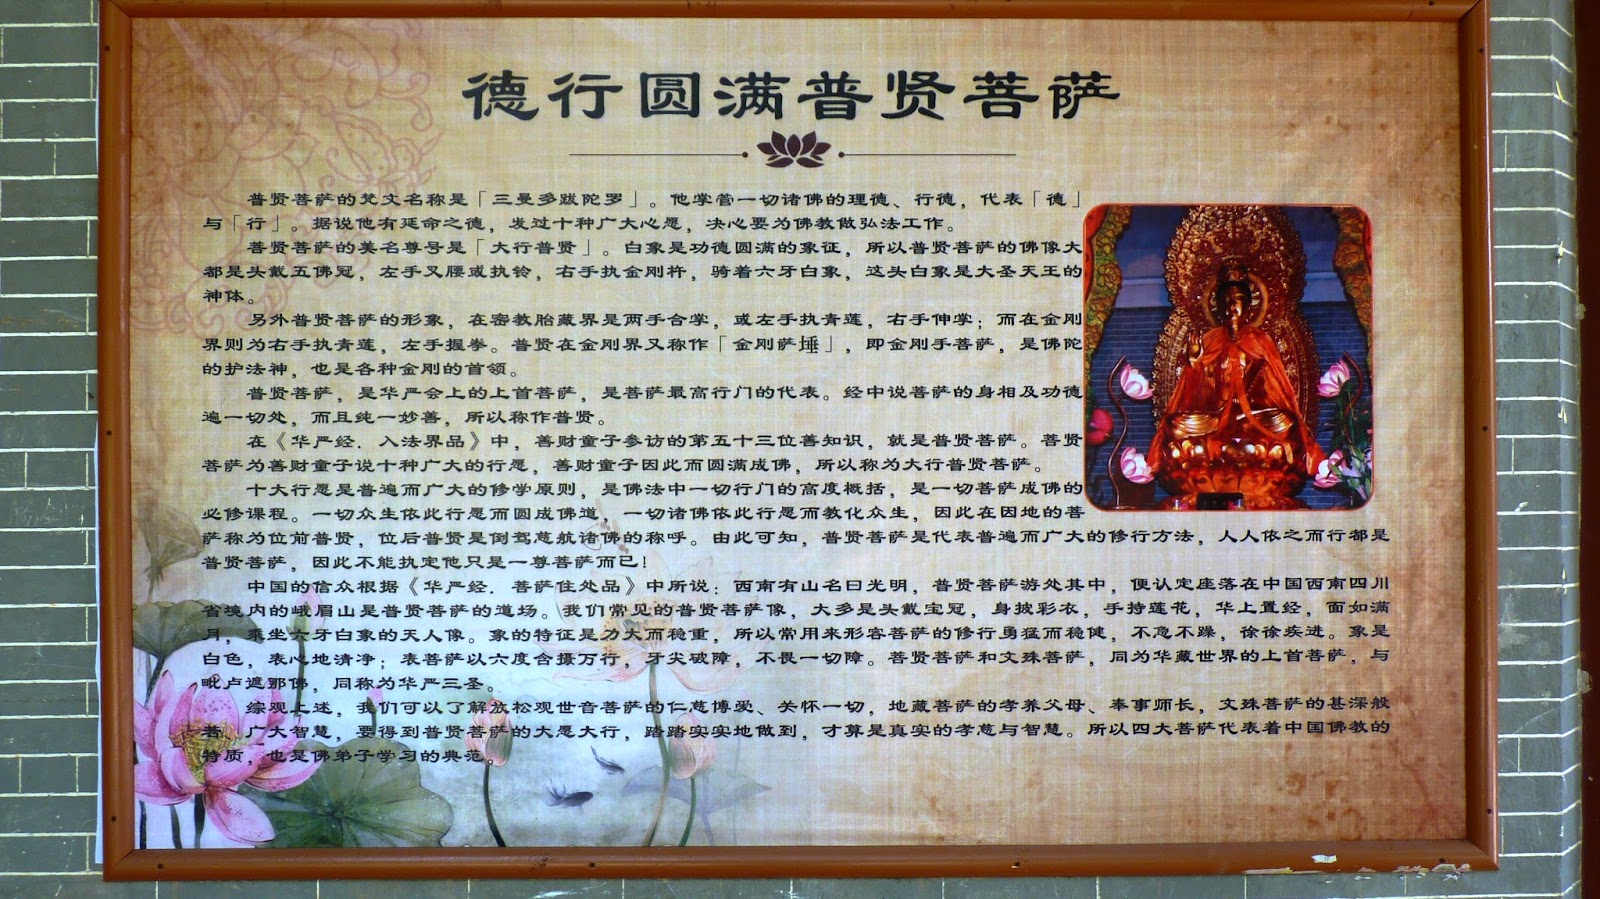 德行圆满普贤菩萨
普贤菩萨的梵文名称是「三曼多跋陀罗」。他掌营一切诸佛的理德、行德，代表「德」
与「行」。据说他有延命之德，发过十种广大心愿，决心要为佛教做弘法工作。
菩贤菩萨的美名尊号是「大行普贤」。白象是功德圆满的象征，所以普贤菩萨的佛像大
都是头戴五佛冠，左手叉腰或执铃，右手执金刚杵，骑着六牙白象，这头白象是大圣天王的
神体。
另外普贤菩萨的形象，在密教胎藏界是两手合掌，或左手执青莲，右手伸掌；而在金刚
界则为右手执青莲，左手握拳。普贤在金刚界又称作「金刚萨埵」，即金刚手菩萨，是佛陀
的护法神，也是各种金刚的首领。
普贤菩萨，是华严会上的上首菩萨，是菩萨最高行门的代表。经中说菩萨的身相及功德
遍一切处，而且纯一妙善，所以称作普贤。
在《华严经．入法界品》中，善财童子参访的第五十三位善知识，就是普贤菩萨。菩贤
菩萨为善财童子说十种广大的行愿，善财童子因此而圆满成佛，所以称为大行普贤菩萨。
十大行愿是普遍而广大的修学原则，是佛法中一切行门的高度概括，是一切菩萨成佛的
必修课程。一切众生依此行愿而圆成佛道，一切诸佛依此行愿而教化众生，因此在因地的菩
萨称为位前普贤，位后普贤是倒驾慈航诸佛的称呼。由此可知，普贤菩萨是代表普遍而广大的修行方法，人人依之而行都是
普贤菩萨，因此不能执定他只是一尊菩萨而已！
中国的信众根据《华严经．菩萨住处品》中所说：西南有山名曰光明，普贤菩萨游处其中，便认定座落在中国西南四川
省境内的峨眉山是普贤菩萨的道场。我们常见的普贤菩萨像，大多是头戴宝冠，身披彩衣，手持莲花，华上置经，面如满
月，乘坐六牙白象的天人像。象的特征是力大而稳重，所以常用来形容菩萨的修行勇猛而稳健，不急不躁，徐徐疾进。象是
白色，表心地清净；表菩萨以六度含摄万行，牙尖破障，不畏一切障。菩贤菩萨和文殊菩萨，同为华藏世界的上首菩萨，与
毗卢遮那佛，同称为华严三圣。
综观上述，我们可以了解放松观世音菩萨的仁慈博爱、关怀一切，地藏菩萨的孝养父母、奉事师长，文殊菩萨的甚深般
若、广大智慧，要得到普贤菩萨的大愿大行，踏踏实实地做到，才算是真实的孝慈与智慧。所以四大菩萨代表着中国佛教的
特质，也是佛弟子学习的典范。